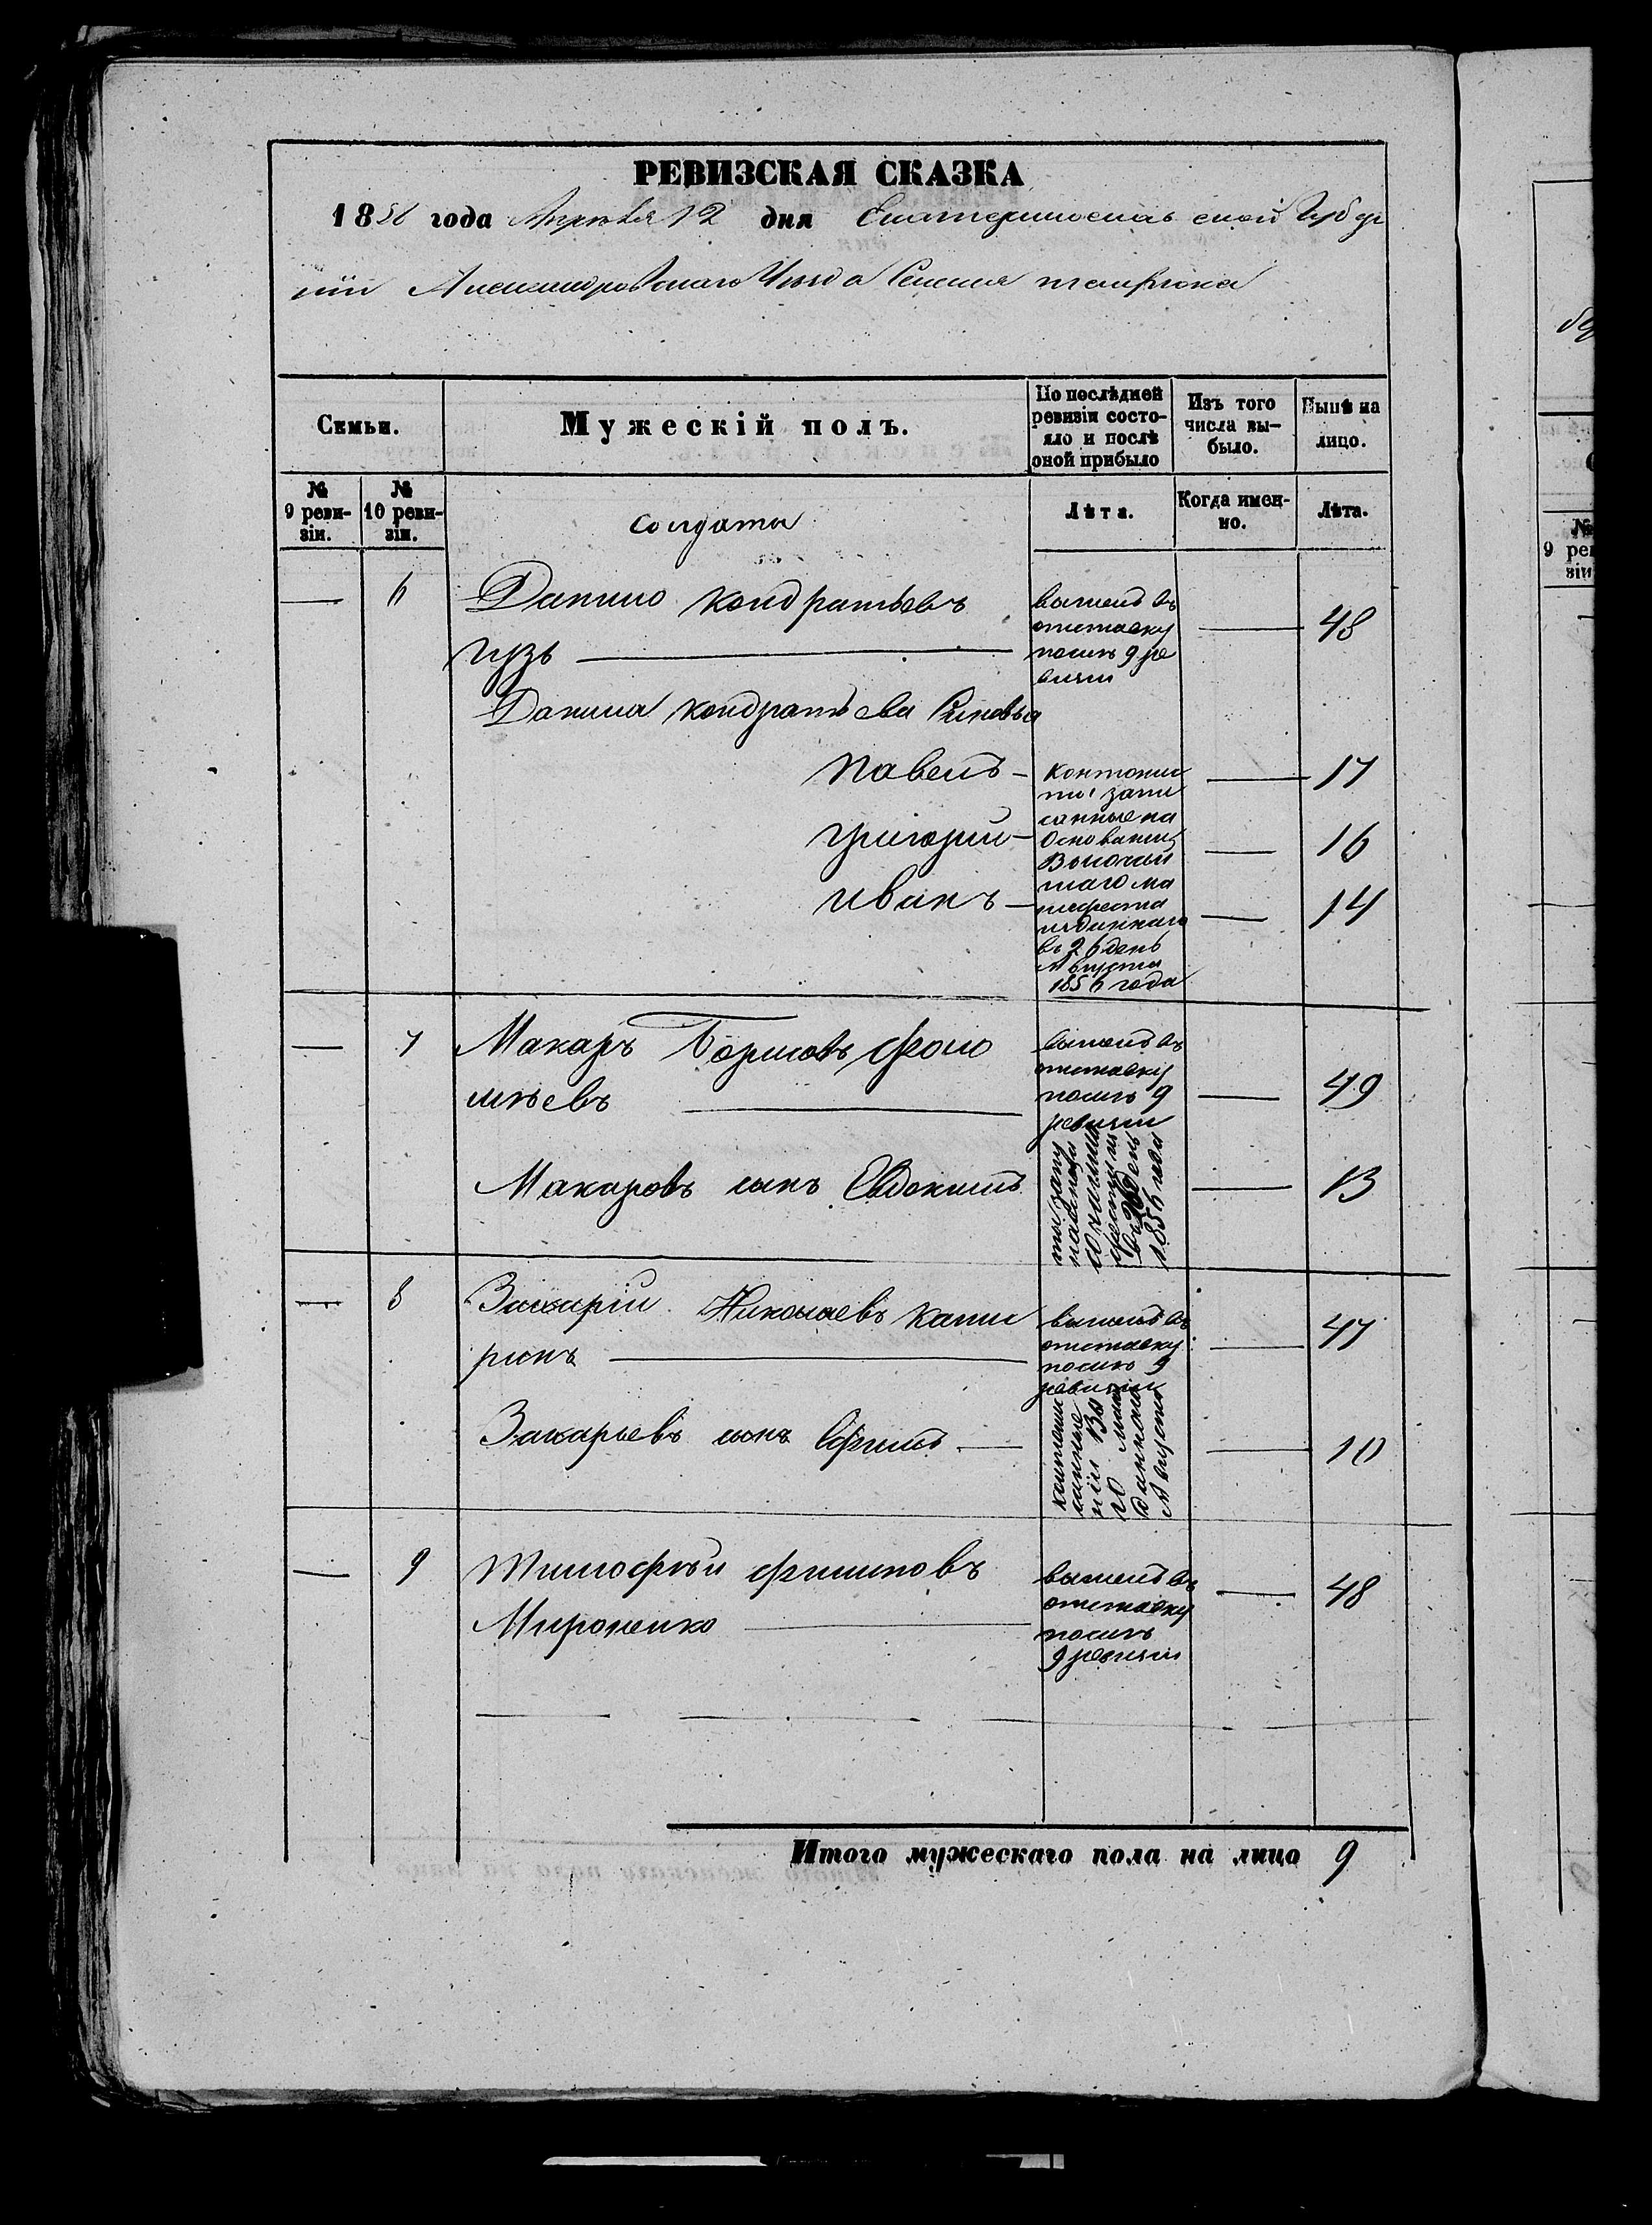 РЕВИЗСКАЯ СКАЗКА
1858 года Апреля 12 дня Екатеринославской Губер
ніи Александровскаго Уѣзда Селенія
Семьи.
Мужескій полъ.
По послѣдней ревизіи состо-
яло и послѣ
оной прибыло
Изъ того
числа вы-
было.
Нынѣ на
лицо.
№
9 реви-
зіи.
№
10 реви-
зіи.
солдаты
Лѣта.
Когда имен-
но.
Лѣта.
— 6 Данило Кондратьевъ
гузь
вышелъ въ
отставку
послѣ 9 ре
визіи
— 48
Данила Кондратьева Сыновья
Павелъ — 17
Григорій — 16
Иванъ — 14
Кантонис
ты запи
санные на
Основаніи
Высочай
шаго ма
нифеста
изданнаго
въ 26 день
Августа
1856 года
— 7 Макаръ Борисовъ
вышелъ въ
отставку
послѣ 9
ревизіи
— 49
Макаровъ сынъ Евдокимъ — 13
1856 года
— 8 Захарій Николаевъ Капи
ринъ
вышелъ въ
отставку
послѣ 9
ревизіи
— 47
Захарьевъ сынъ Ефимъ — 10
Августа
— 9 Тимофѣй Филиповъ
Мироненко
вышелъ въ
отставку
послѣ
9 ревизіи
— 48
Итого мужескаго пола на лицо 9
№
9 рев
зіи